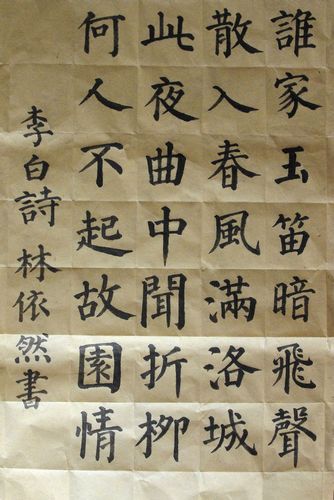 誰家玉笛暗飛聲
散入春風滿洛城
此夜曲中聞折柳
何人不起故園情
李白詩林依然書